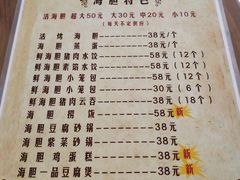 海胆特色
活海胆 超大50元 大30元 中20元 小10元
(每天不定供应)
活烤海胆——38元/个
海胆蒸蛋——38元/个
鲜海胆猪肉水饺——58元(12个)
鲜海胆素馅水饺——58元(12个)
鲜海胆小笼包——58元(12个)
鲜海胆小笼包——30元(6个)
鲜海胆猪肉云吞——38元(18个)
海胆捞饭——58元 新
海胆豆腐砂锅——38元
海胆紫菜砂锅——38元
海胆鸡蛋糕——38元 新
海胆一品豆腐煲——38元 新